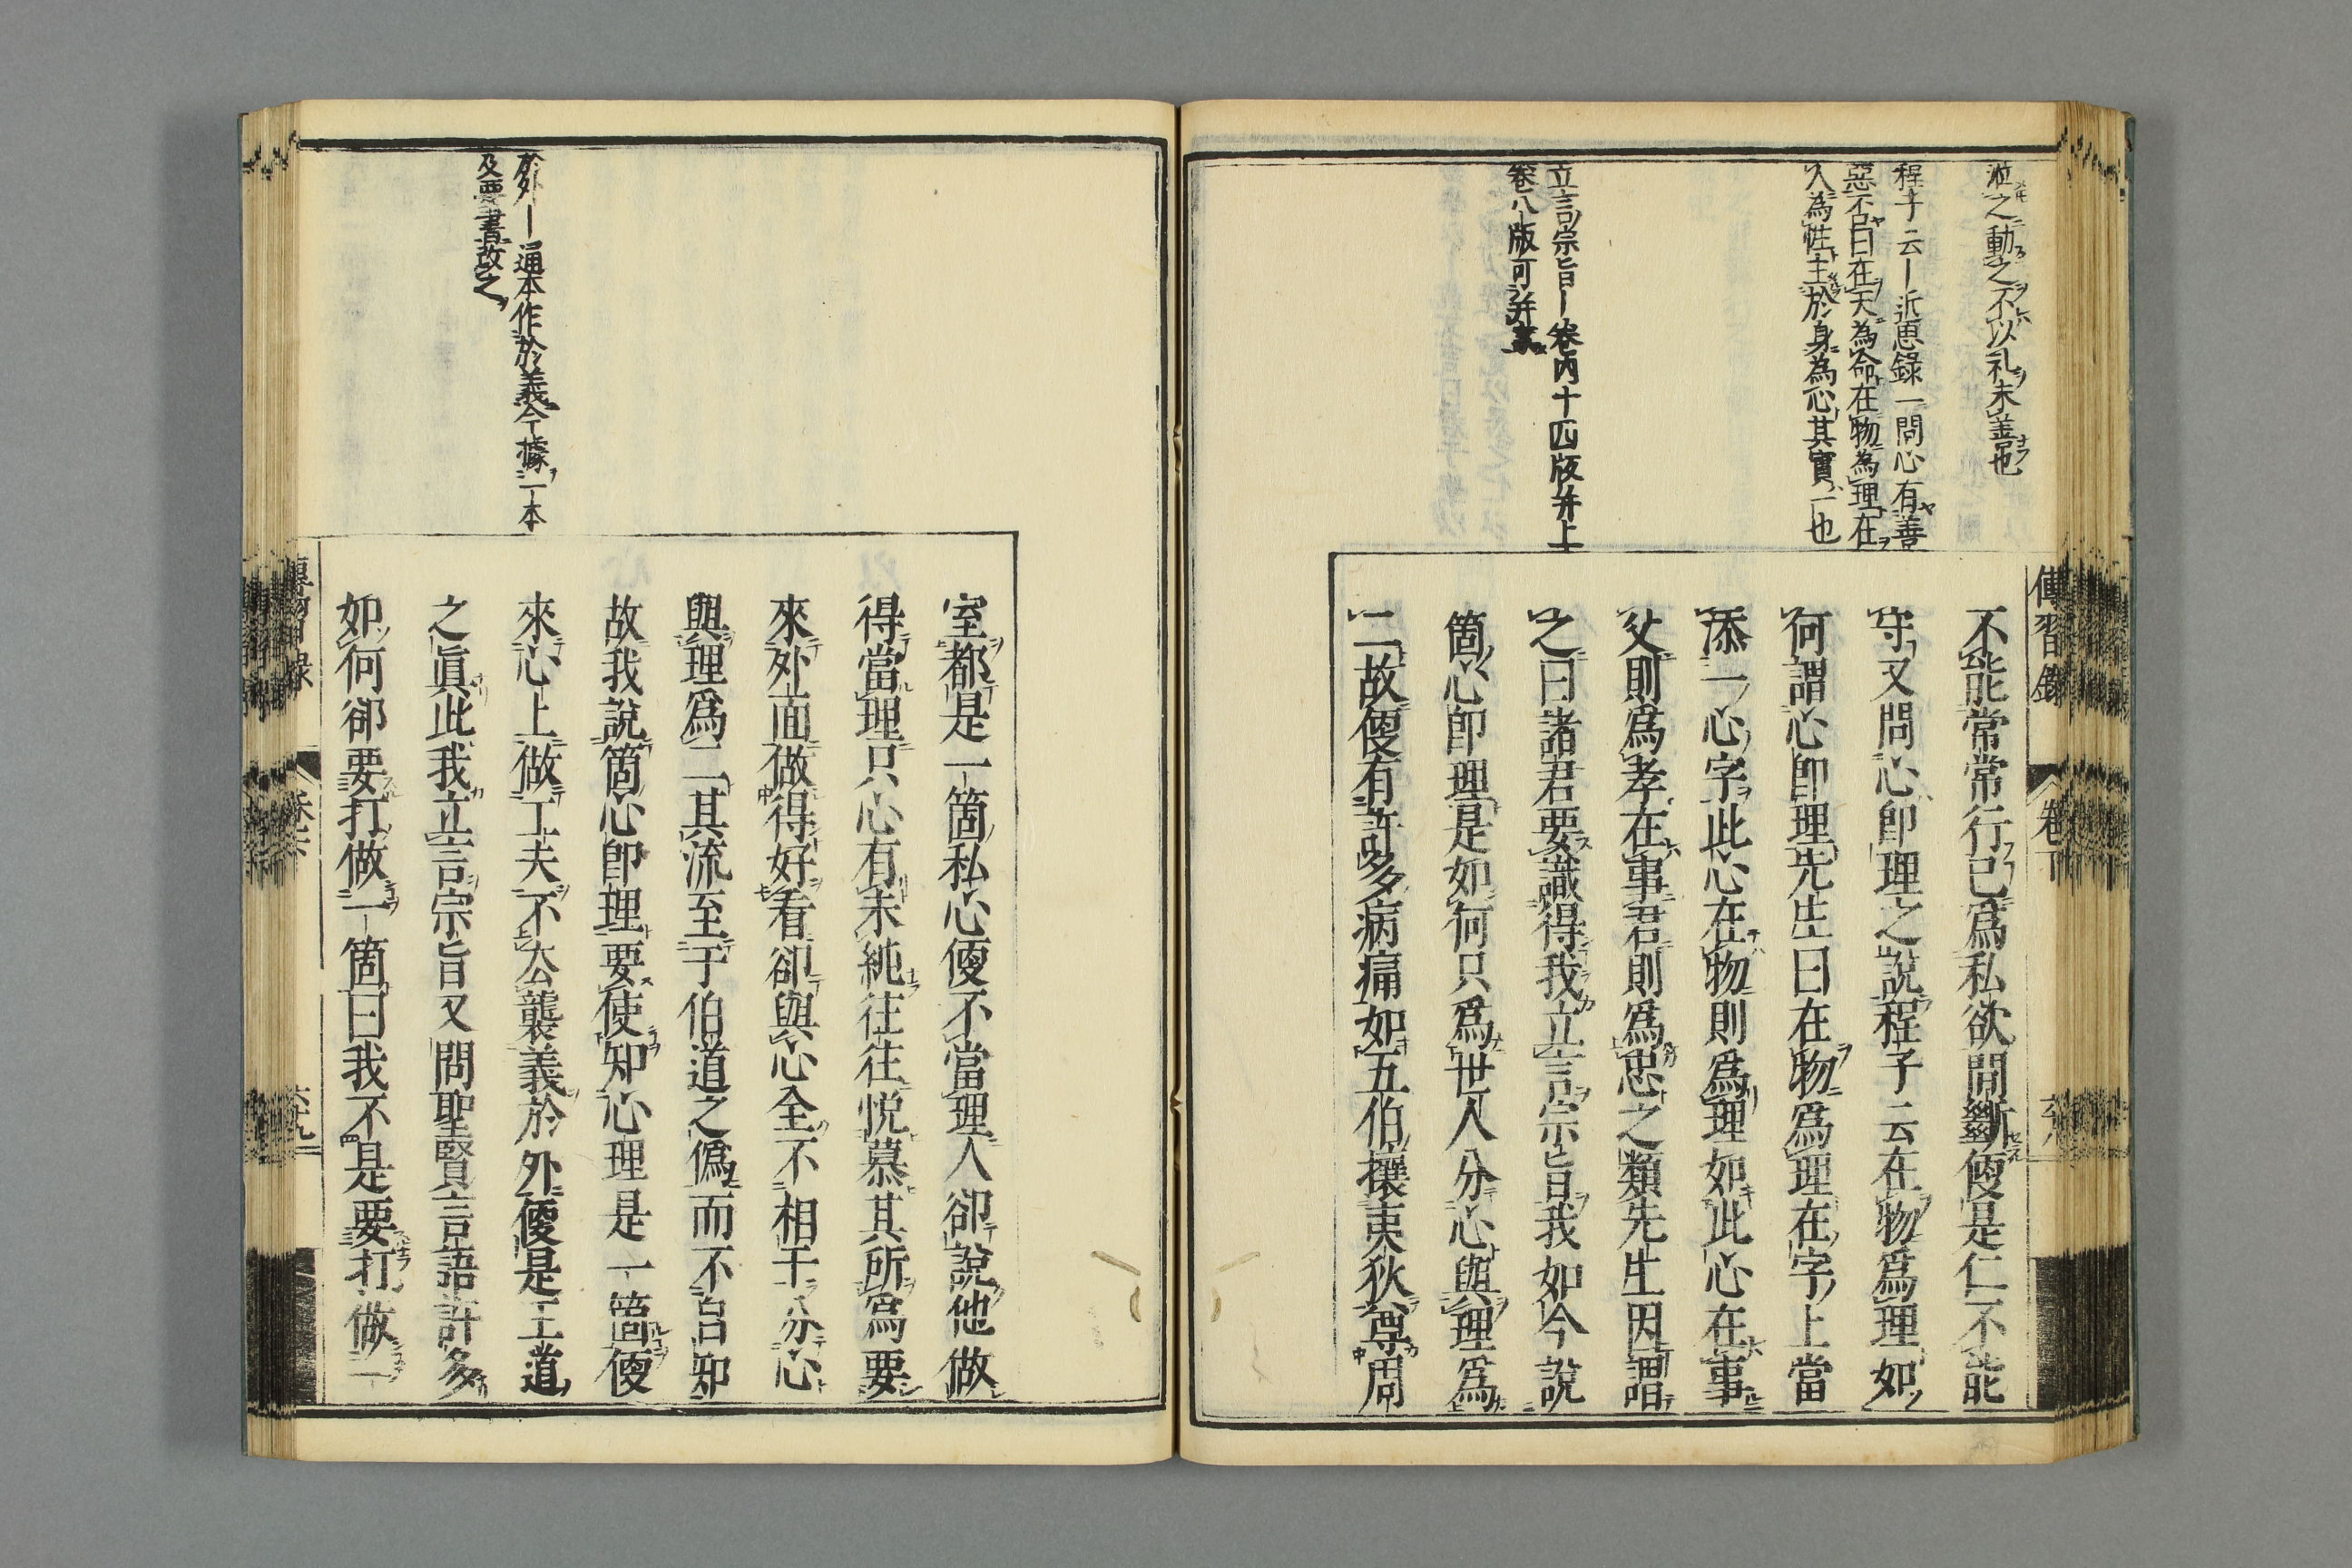 涖之動之不以礼未善也
程子云―近思錄一問心有善
惡否曰在天為命在物為理在
人為性主於身為心其實一也
立言宗旨―卷內十四版幷上
卷八版可幷案
傳習錄
卷下
不能常常行已爲私欲間斷便是仁不能
守又問心卽理之說程子云在物爲理如
何謂心卽理先生曰在物爲理在字上當
添一心字此心在物則爲理如此心在事
父則爲孝在事君則爲忠之類先生因謂
之曰諸君要識得我立言宗旨我如今說
箇心卽理是如何只爲世人分心與理爲
二故便有許多病痛如五伯攘夷狄尊周
於外―通本作於義今據一本
及要書改之
室都是一箇私心便不當理人卻說他做
得當理只心有未純往往悅慕其所爲要
來外面做得好看卻與心全不相干分心
與理爲二其流至于伯道之僞而不自知
故我說箇心卽理要使知心理是一箇便
來心上做工夫不去襲義於外便是王道
之眞此我立言宗旨又問聖賢言語許多
如何卻要打做一箇曰我不是要打做一
傳習錄